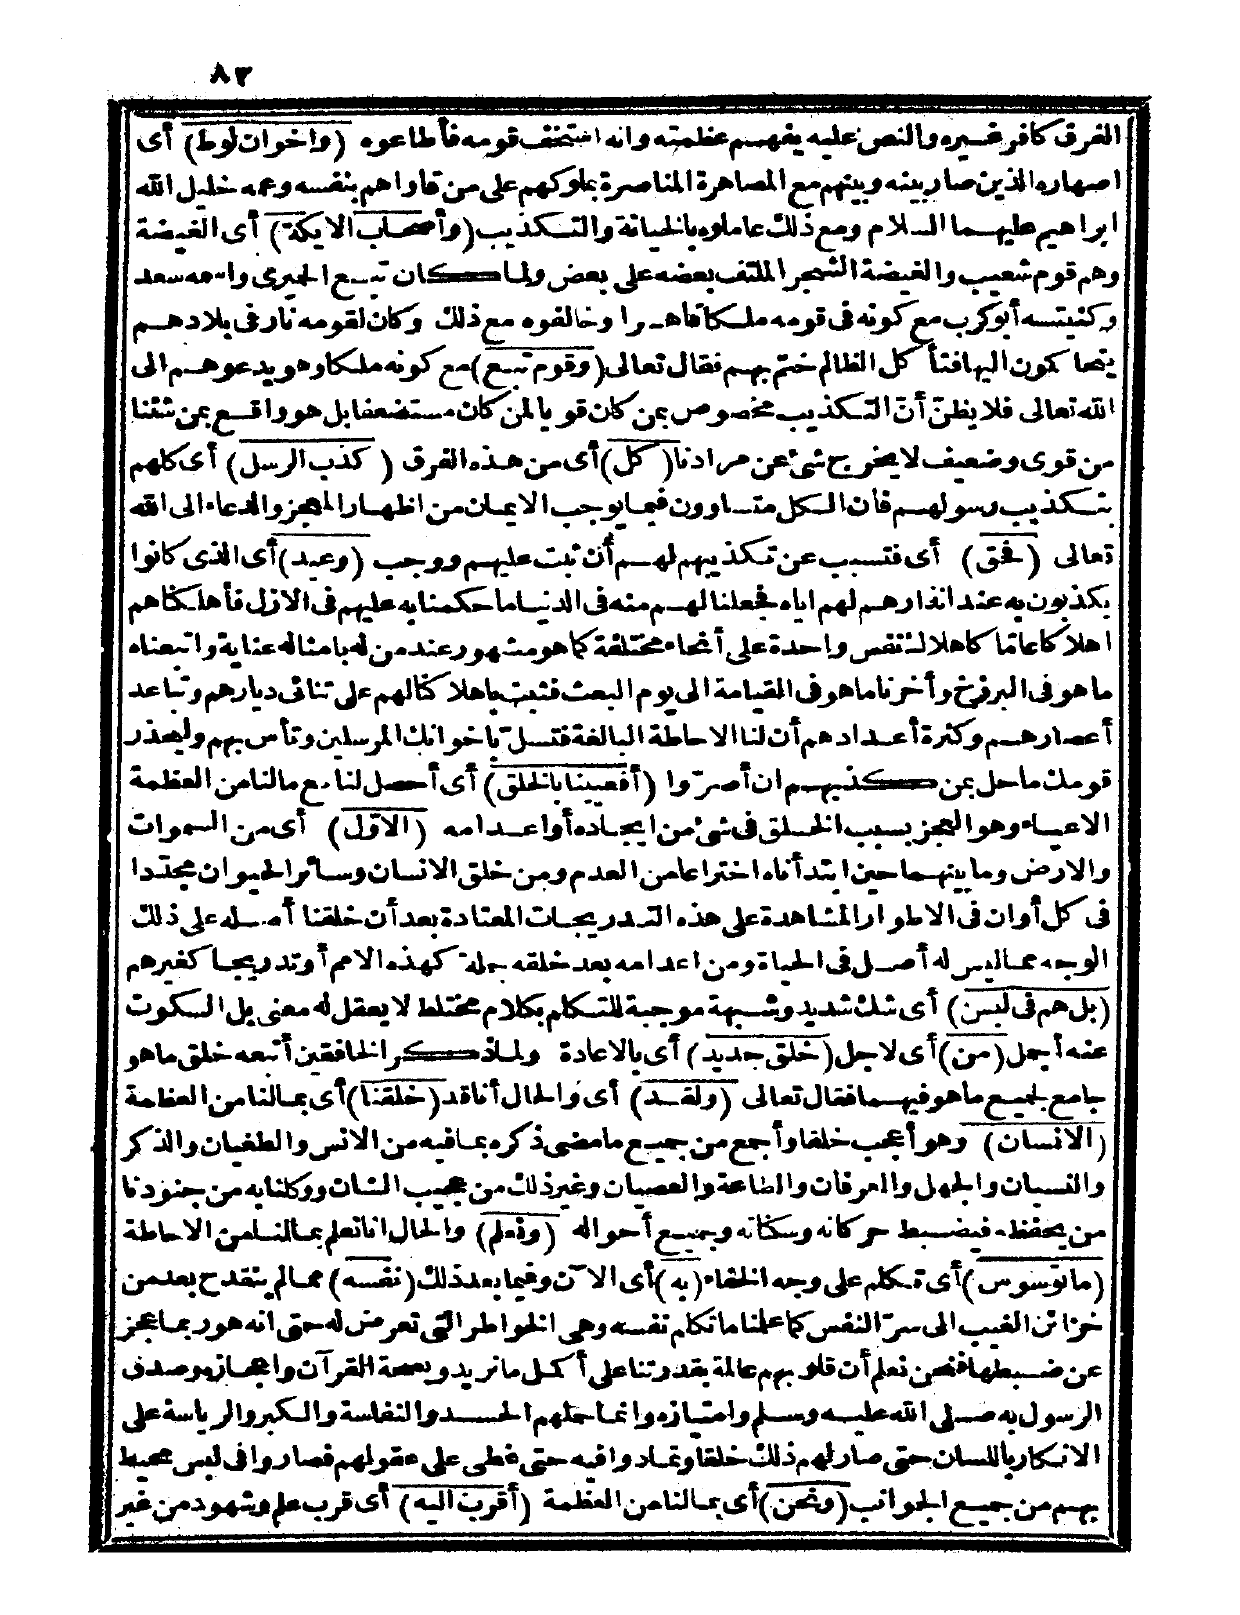 ٨٣
الفرق كافر غيره والنص عليه يفهم عظمته وانه استخف قومه فأطاعوه (واخوان لوط) أى
اصهاره الذين صار بينه وبينهم مع المصاهرة المناصرة بملوكهم على من ناواهم بنفسه وعمه خليل الله
ابراهيم عليهما السلام ومع ذلك عاملوه بالخيانة والتكذيب (وأصحاب الايكة) أى الغيضة
وهم قوم شعيب والغيضة الشجر الملتف بعضه على بعض ولما كان تبع الحميرى واسمه سعد
وكنيته أبو كرب مع كونه فى قومه ملكا قاهرا وخالفوه مع ذلك وكان لقومه نار فى بلادهم
يتحاكمون اليها فتأكل الظالم ختم بهم فقال تعالى (وقوم تبع) مع كونه ملكا وهو يدعوهم الى
الله تعالى فلا يظنّ أنّ التكذيب مخصوص بمن كان قويا لمن كان مستضعفا بل هو واقع بمن شئنا
من قوى وضعيف لا يخرج شئ عن مرادنا (كل) أى من هذه الفرق (كذب الرسل) أى كلهم
بتكذيب رسولهم فان الكل متساوون فيما يوجب الايمان من اظهار المعجز والدعاء الى الله
تعالى (فحق) أى فتسبب عن تكذيبهم لهم أن ثبت عليهم ووجب (وعيد) أى الذى كانوا
يكذبون به عند انذارهم لهم اياه فجعلنا لهم منه فى الدنيا ما حكمنا به عليهم فى الازل فأهلكناهم
اهلاكا عامّا كاهلاك نفس واحدة على أنحاء مختلفة كما هو مشهور عند من له بامثاله عناية واتبعناه
ما هو فى البرزخ وأخرنا ما هو فى القيامة الى يوم البعث فثبت باهلاكنا لهم على تنائى ديارهم وتباعد
أعصارهم وكثرة أعدادهم أن لنا الاحاطة البالغة فتسلّ باخوانك المرسلين وتأس بهم وليحذر
قومك ما حل بمن كذبهم ان أصرّوا (أفعيينا بالخلق) أى أحصل لنا مع مالنا من العظمة
الاعياء وهو العجز بسبب الخلق فى شئ من ايجاده أو اعدامه (الاوّل) أى من السموات
والارض وما بينهما حين ابتدأناه اختراعا من العدم ومن خلق الانسان وسائر الحيوان مجدّدا
فى كل أوان فى الاطوار المشاهدة على هذه التدريجات المعتادة بعد أن خلقنا أصله على ذلك
الوجه مما ليس له أصل فى الحياة ومن اعدامه بعد خلقه جملة كهذه الامم أو تدريجا كغيرهم
(بل هم فى لبس) أى شك شديد وشبهة موجبة للتكلم بكلام مختلط لا يعقل له معنى بل السكوت
عنه أجمل (من) أى لاجل (خلق جديد) أى بالاعادة ولما ذكر الخافقين أتبعه خلق ما هو
جامع لجميع ما هو فيهما فقال تعالى (ولقد) أى والحال أنا قد (خلقنا) أى بمالنا من العظمة
(الانسان) وهو أعجب خلقا وأجمع من جميع ما مضى ذكره بما فيه من الانس والطغيان والذكر
والنسيان والجهل والعرفان والطاعة والعصيان وغير ذلك من عجيب الشان ووكلنا به من جنودنا
من يحفظه فيضبط حركاته وسكناته وجميع أحواله (ونعلم) والحال انا نعلم بمالنا من الاحاطة
(ما توسوس) أى تكلم على وجه الخفاء (به) أى الآن وفيما بعد ذلك (نفسه) مما لم ينقدح بعد من
خزائن الغيب الى سرّ النفس كما علمنا ما تكلم نفسه وهى الخواطر التى تعرض له حتى انه هو ربما عجز
عن ضبطها فنحن نعلم أن قلوبهم عالمة بقدرتنا على أكمل ما نريد وبصحة القرآن واعجازه وصدق
الرسول به صلى الله عليه وسلم وامتيازه وانما حملهم الحسد والنفاسة والكبر والرياسة على
الانكار باللسان حتى صار لهم ذلك خلقا وتمادوا فيه حتى غطى على عقولهم فصاروا فى لبس محيط
بهم من جميع الجوانب (ونحن) أى بمالنا من العظمة (أقرب اليه) أى قرب علم وشهود من غير